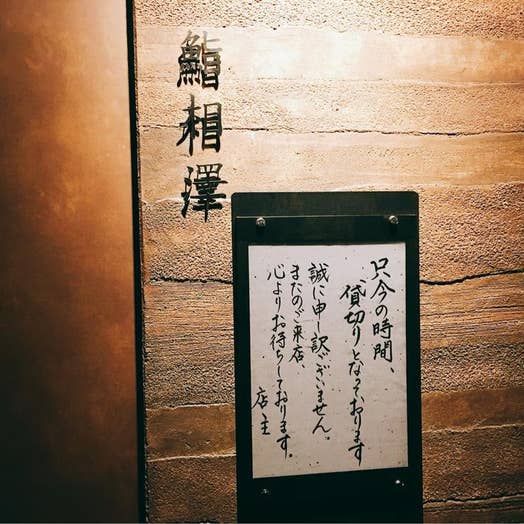 鮨相澤
只今の時間、
貸切りとなっております
誠に申し訳ございません。
またのご来店、
心よりお待ちしております。
店主